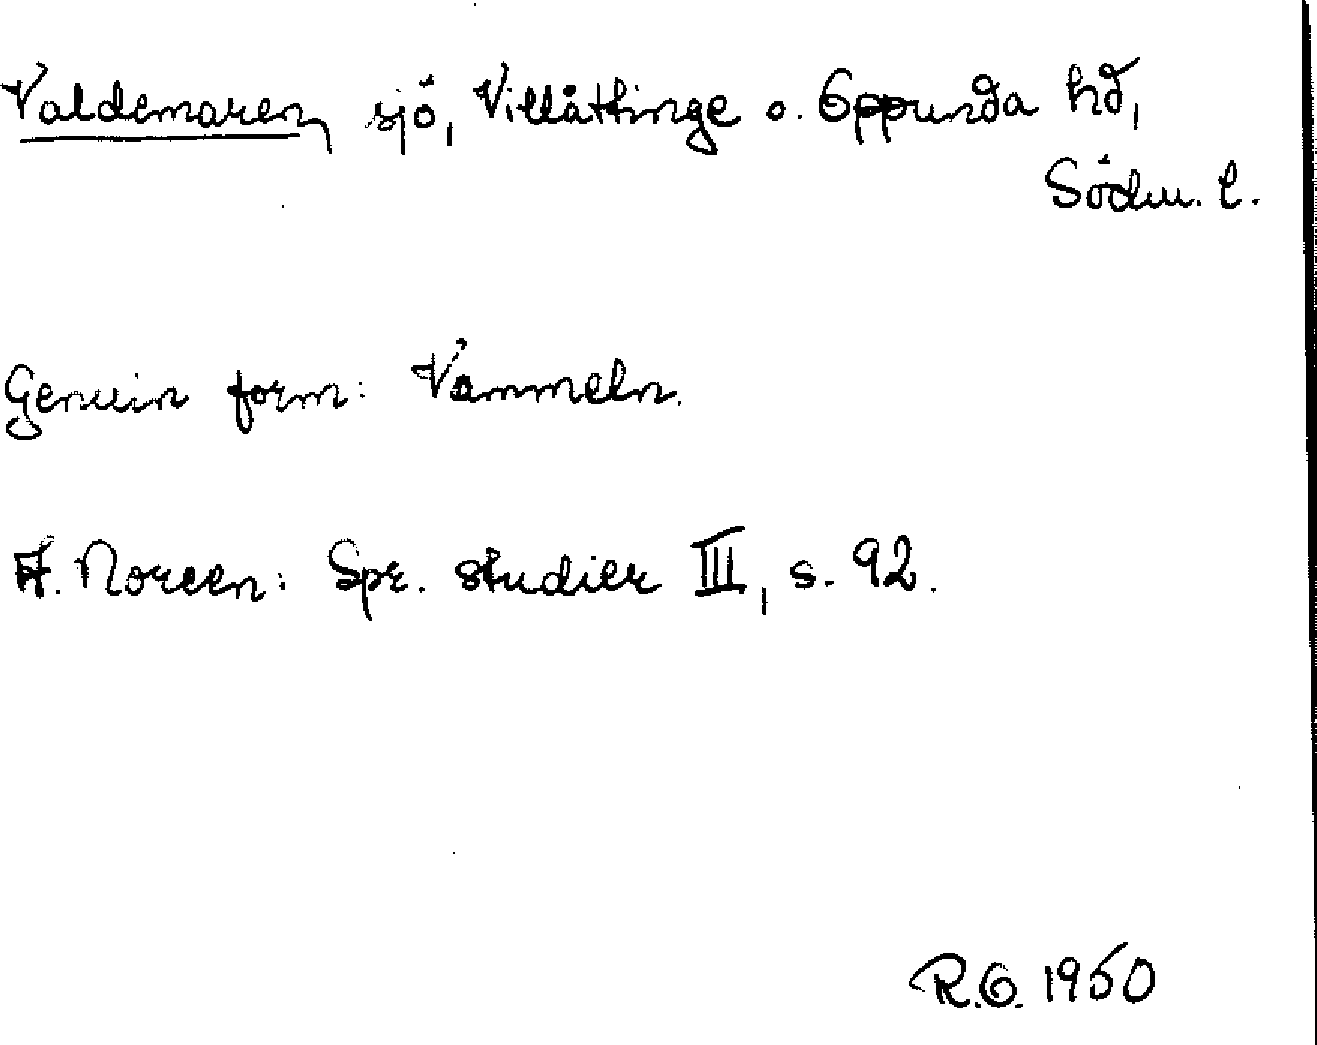 Valdemaren, sjö, Villåttinge o. Oppunda hd,
Södm. l.
Genuin form: Vammeln.
A. Noreen: Spr. studier III, s. 92.
R.O. 1950